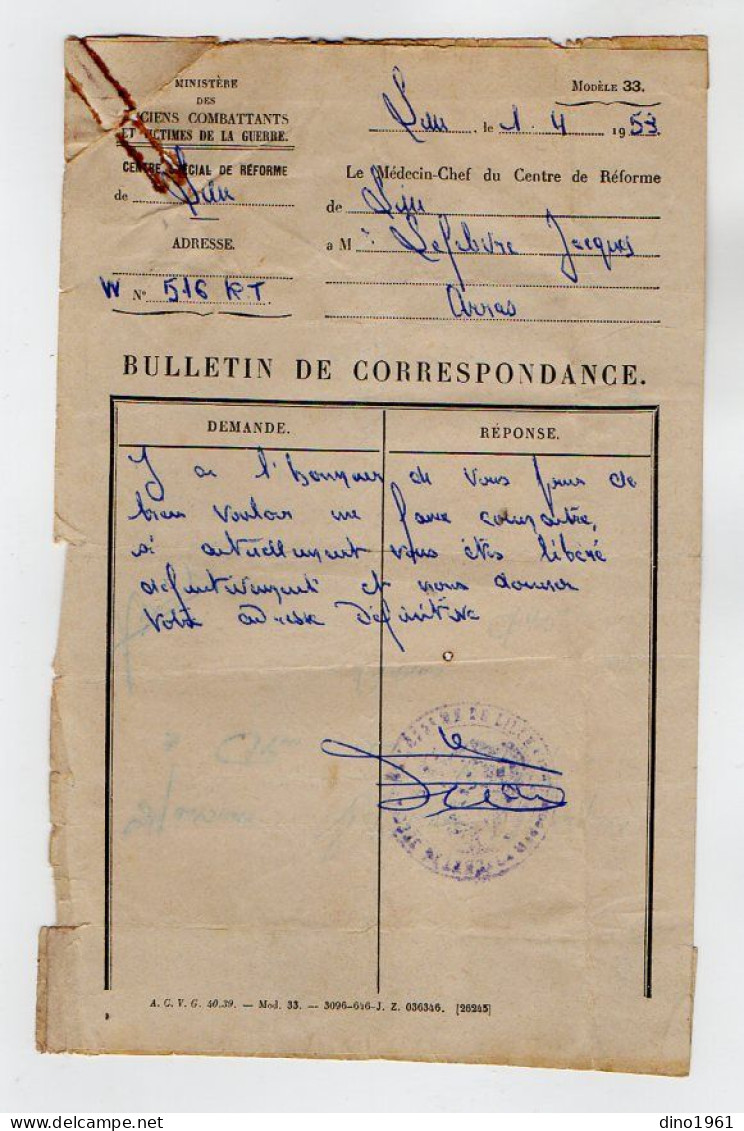 MINISTÈRE
DES
CIENS COMBATTANTS
ET VICTIMES DE LA GUERRE.
CENTRE SPÉCIAL DE RÉFORME
de Lille
ADRESSE.
W N° 516 RT.
MODÈLE 33.
Lille, le 1. 4 1953
Le Médecin-Chef du Centre de Réforme
de Lille
a M Lefebvre Jacques
Arras
BULLETIN DE CORRESPONDANCE.
DEMANDE.
RÉPONSE.
J ai l'honneur de vous prier de
bien vouloir me faire connaitre,
si actuellement vous êtes libéré
définitivement et nous donner
votre adresse définitive
A. C. V. G. 40.39. — Mod. 33. — 3096-646-J. Z. 036346. [26245]
dino1961